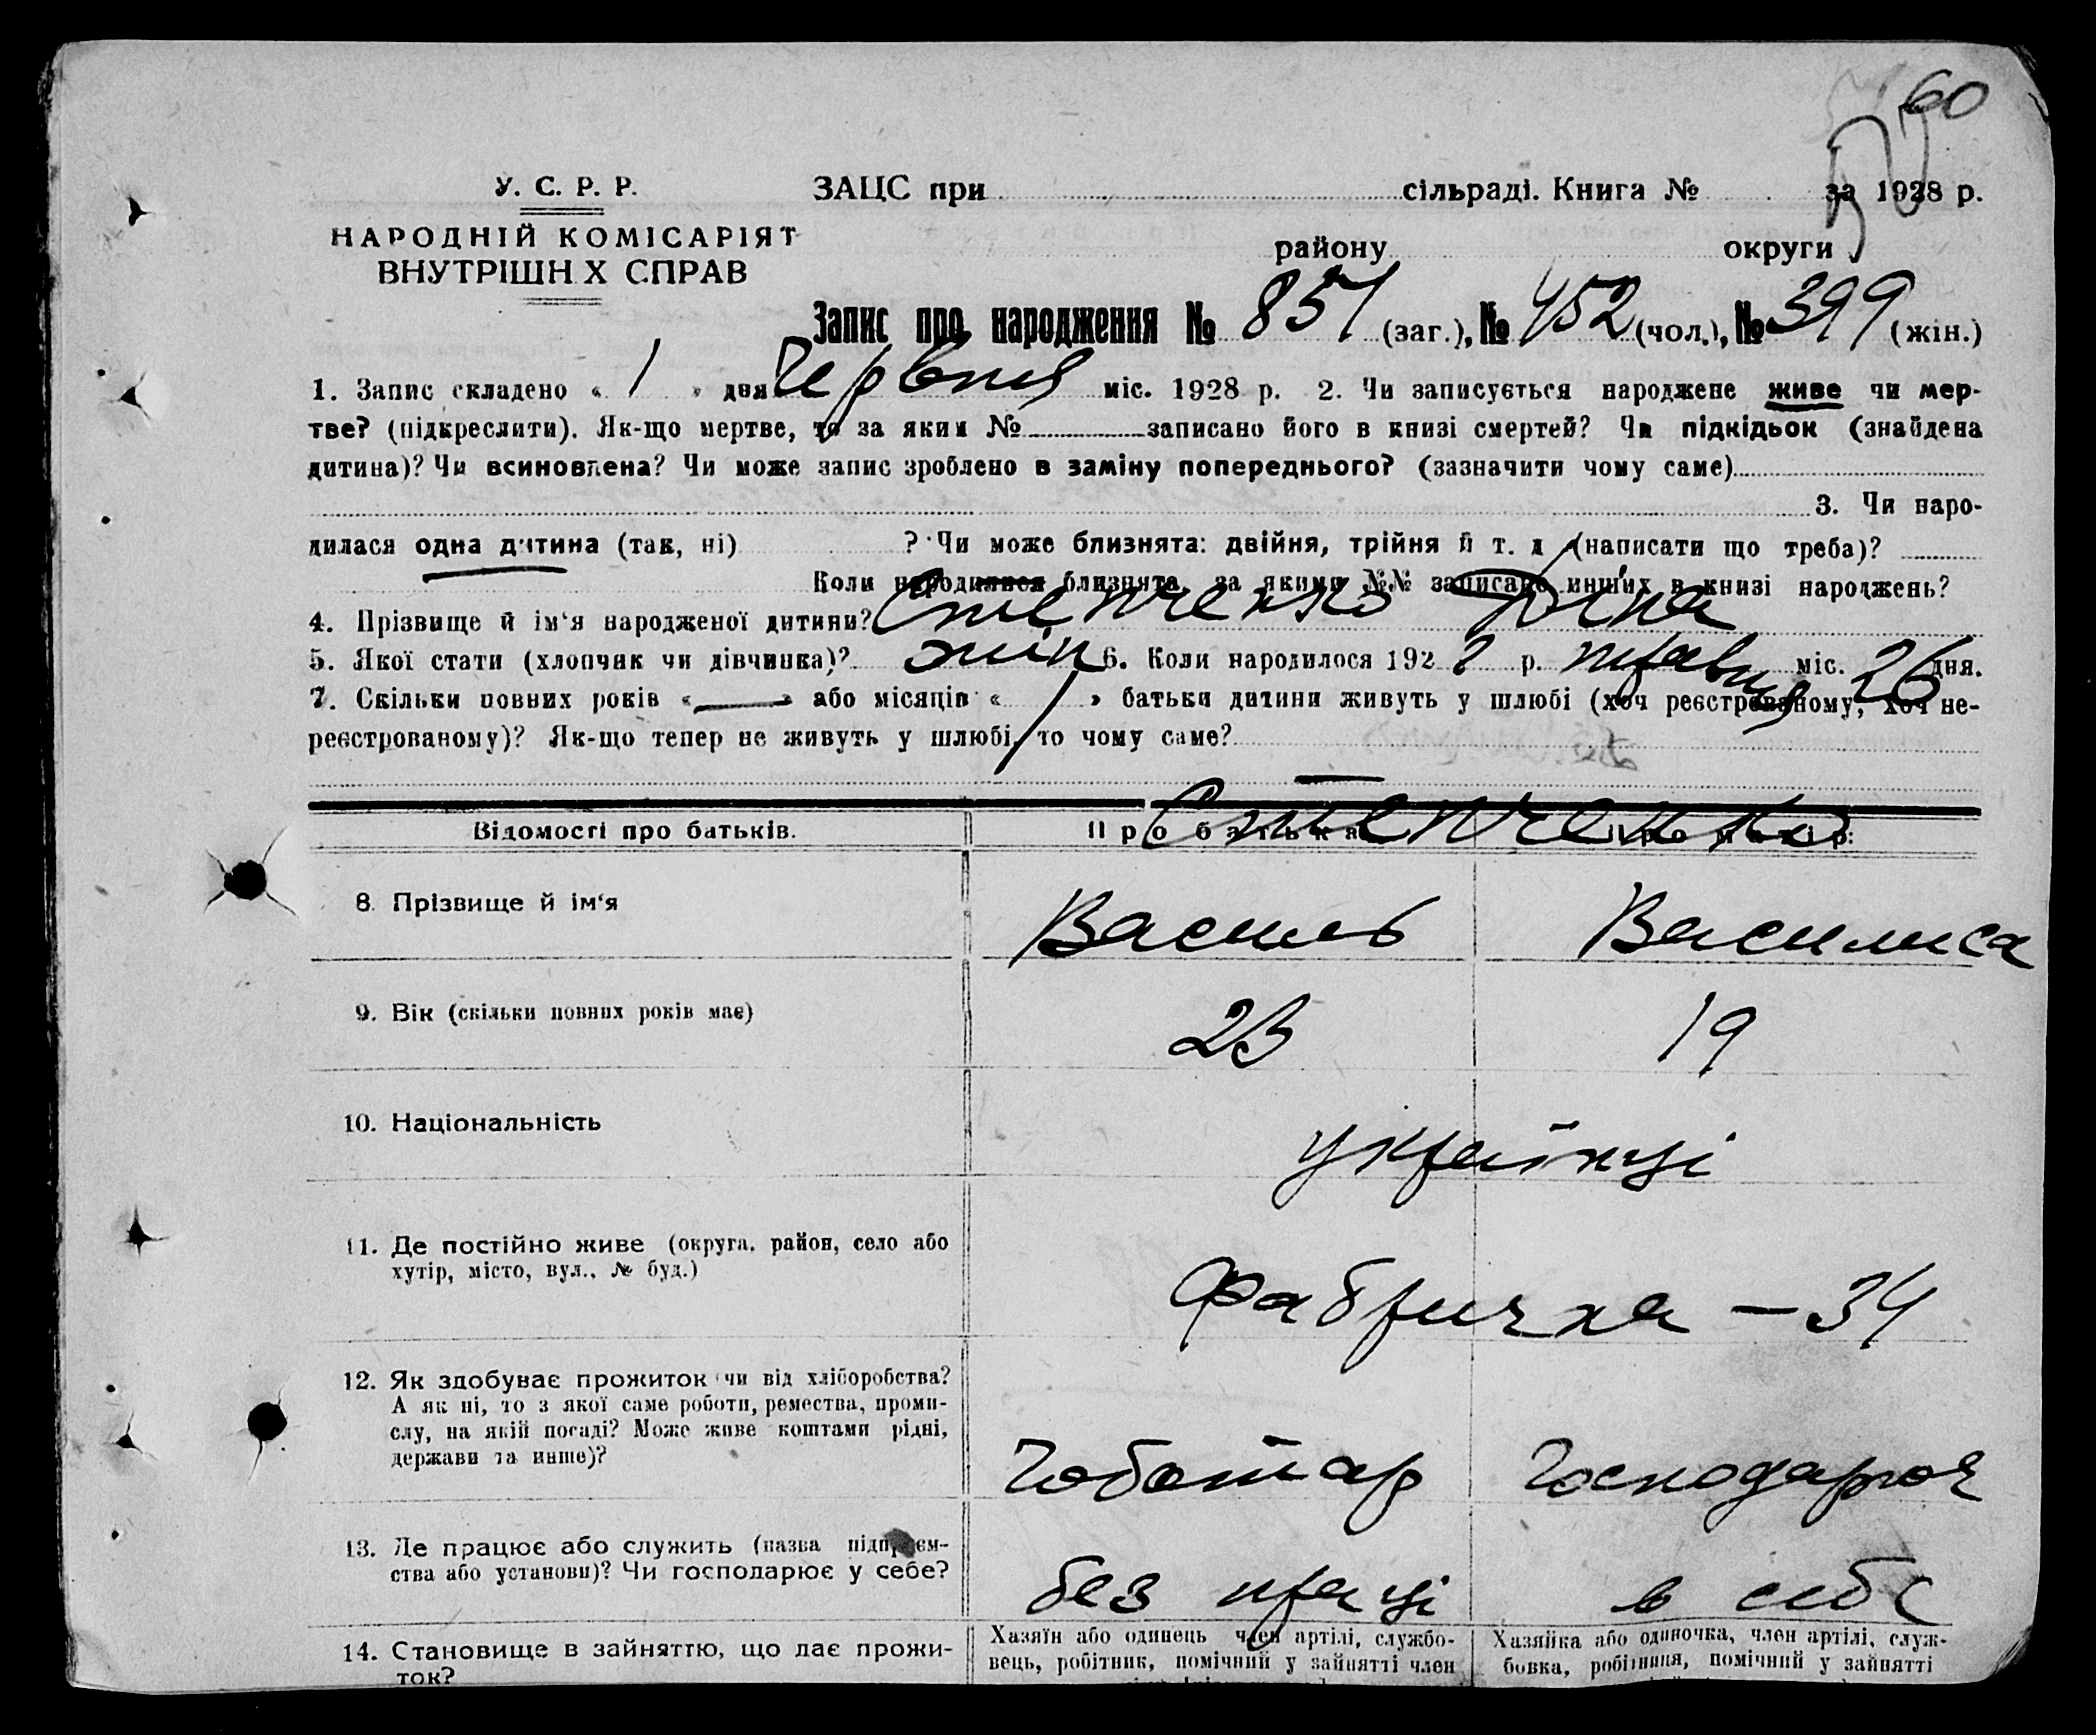 60
У. С. Р. Р.
ЗАЦС при сільраді. Книга № за 1928 р.
НАРОДНІЙ КОМІСАРІЯТ
ВНУТРІШН Х СПРАВ
району округи
Запис про народження № 851 (заг.), № 452 (чол.), № 399 (жін.)
1. Запис складено « 1 » дня Червня міс. 1928 р. 2. Чи записується народжене живе чи мер-
тве? (підкреслити). Як-що мертве, то за яким № записано його в книзі смертей? Чи підкідьок (знайдена
дитина)? Чи всиновлена? Чи може запис зроблено в заміну попереднього? (зазначити чому саме)
3. Чи наро-
дилася одна дитина (так, ні) ? Чи може близнята: двійня, трійня й т. д (написати що треба)?
Коли народилися близнята, за якими №№ записано инших в книзі народжень?
4. Прізвище й ім‘я народженої дитини? Степченко
5. Якої стати (хлопчик чи дівчинка)? жін 6. Коли народилося 1928 р. травня міс. 26 дня.
7. Скільки повних років « — » або місяців « 1 » батьки дитини живуть у шлюбі (хоч реєстрованому, хоч не-
реєстрованому)? Як-що тепер не живуть у шлюбі, то чому саме?
Відомості про батьків. Про батька Про матір:
Степченко
8. Прізвище й ім‘я Василь Василиса
9. Вік (скільки повних років має) 23 19
10. Національність українці
11. Де постійно живе (округа, район, село або
хутір, місто, вул., № буд.)
Фабрична — 34
12. Як здобуває прожиток чи від хліборобства?
А як ні, то з якої саме роботи, ремества, проми-
слу, на якій посаді? Може живе коштами рідні,
держави та инше)?
Чоботар Господарює
13. Де працює або служить (назва підприєм-
ства або установи)? Чи господарює у себе?
без праці в себе
14. Становище в зайняттю, що дає прожи-
ток?
Хазяїн або одинець член артілі, службо-
вець, робітник, помічний у зайнятті член
Хазяйка або одиночка, член артілі, служ-
бовка, робітниця, помічний у зайнятті